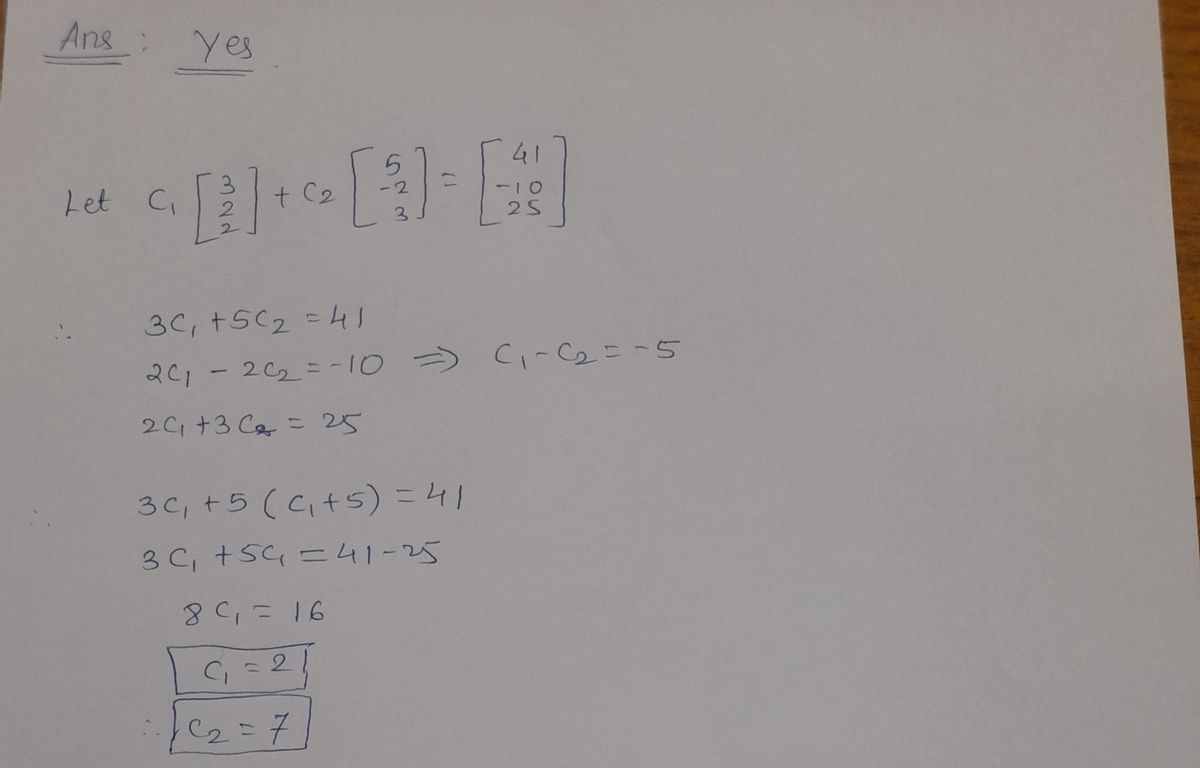 Ans : Yes.
Let C₁ [3 2 2] + C2 [5 -2 3] = [41 -10 25]
∴ 3C₁ + 5C2 = 41
2C₁ - 2C2 = -10 ⇒ C₁ - C2 = -5
2C₁ + 3C2 = 25
∴ 3C₁ + 5 (C₁ + 5) = 41
3C₁ + 5C₁ = 41 - 25
8C₁ = 16
C₁ = 2
∴ C2 = 7